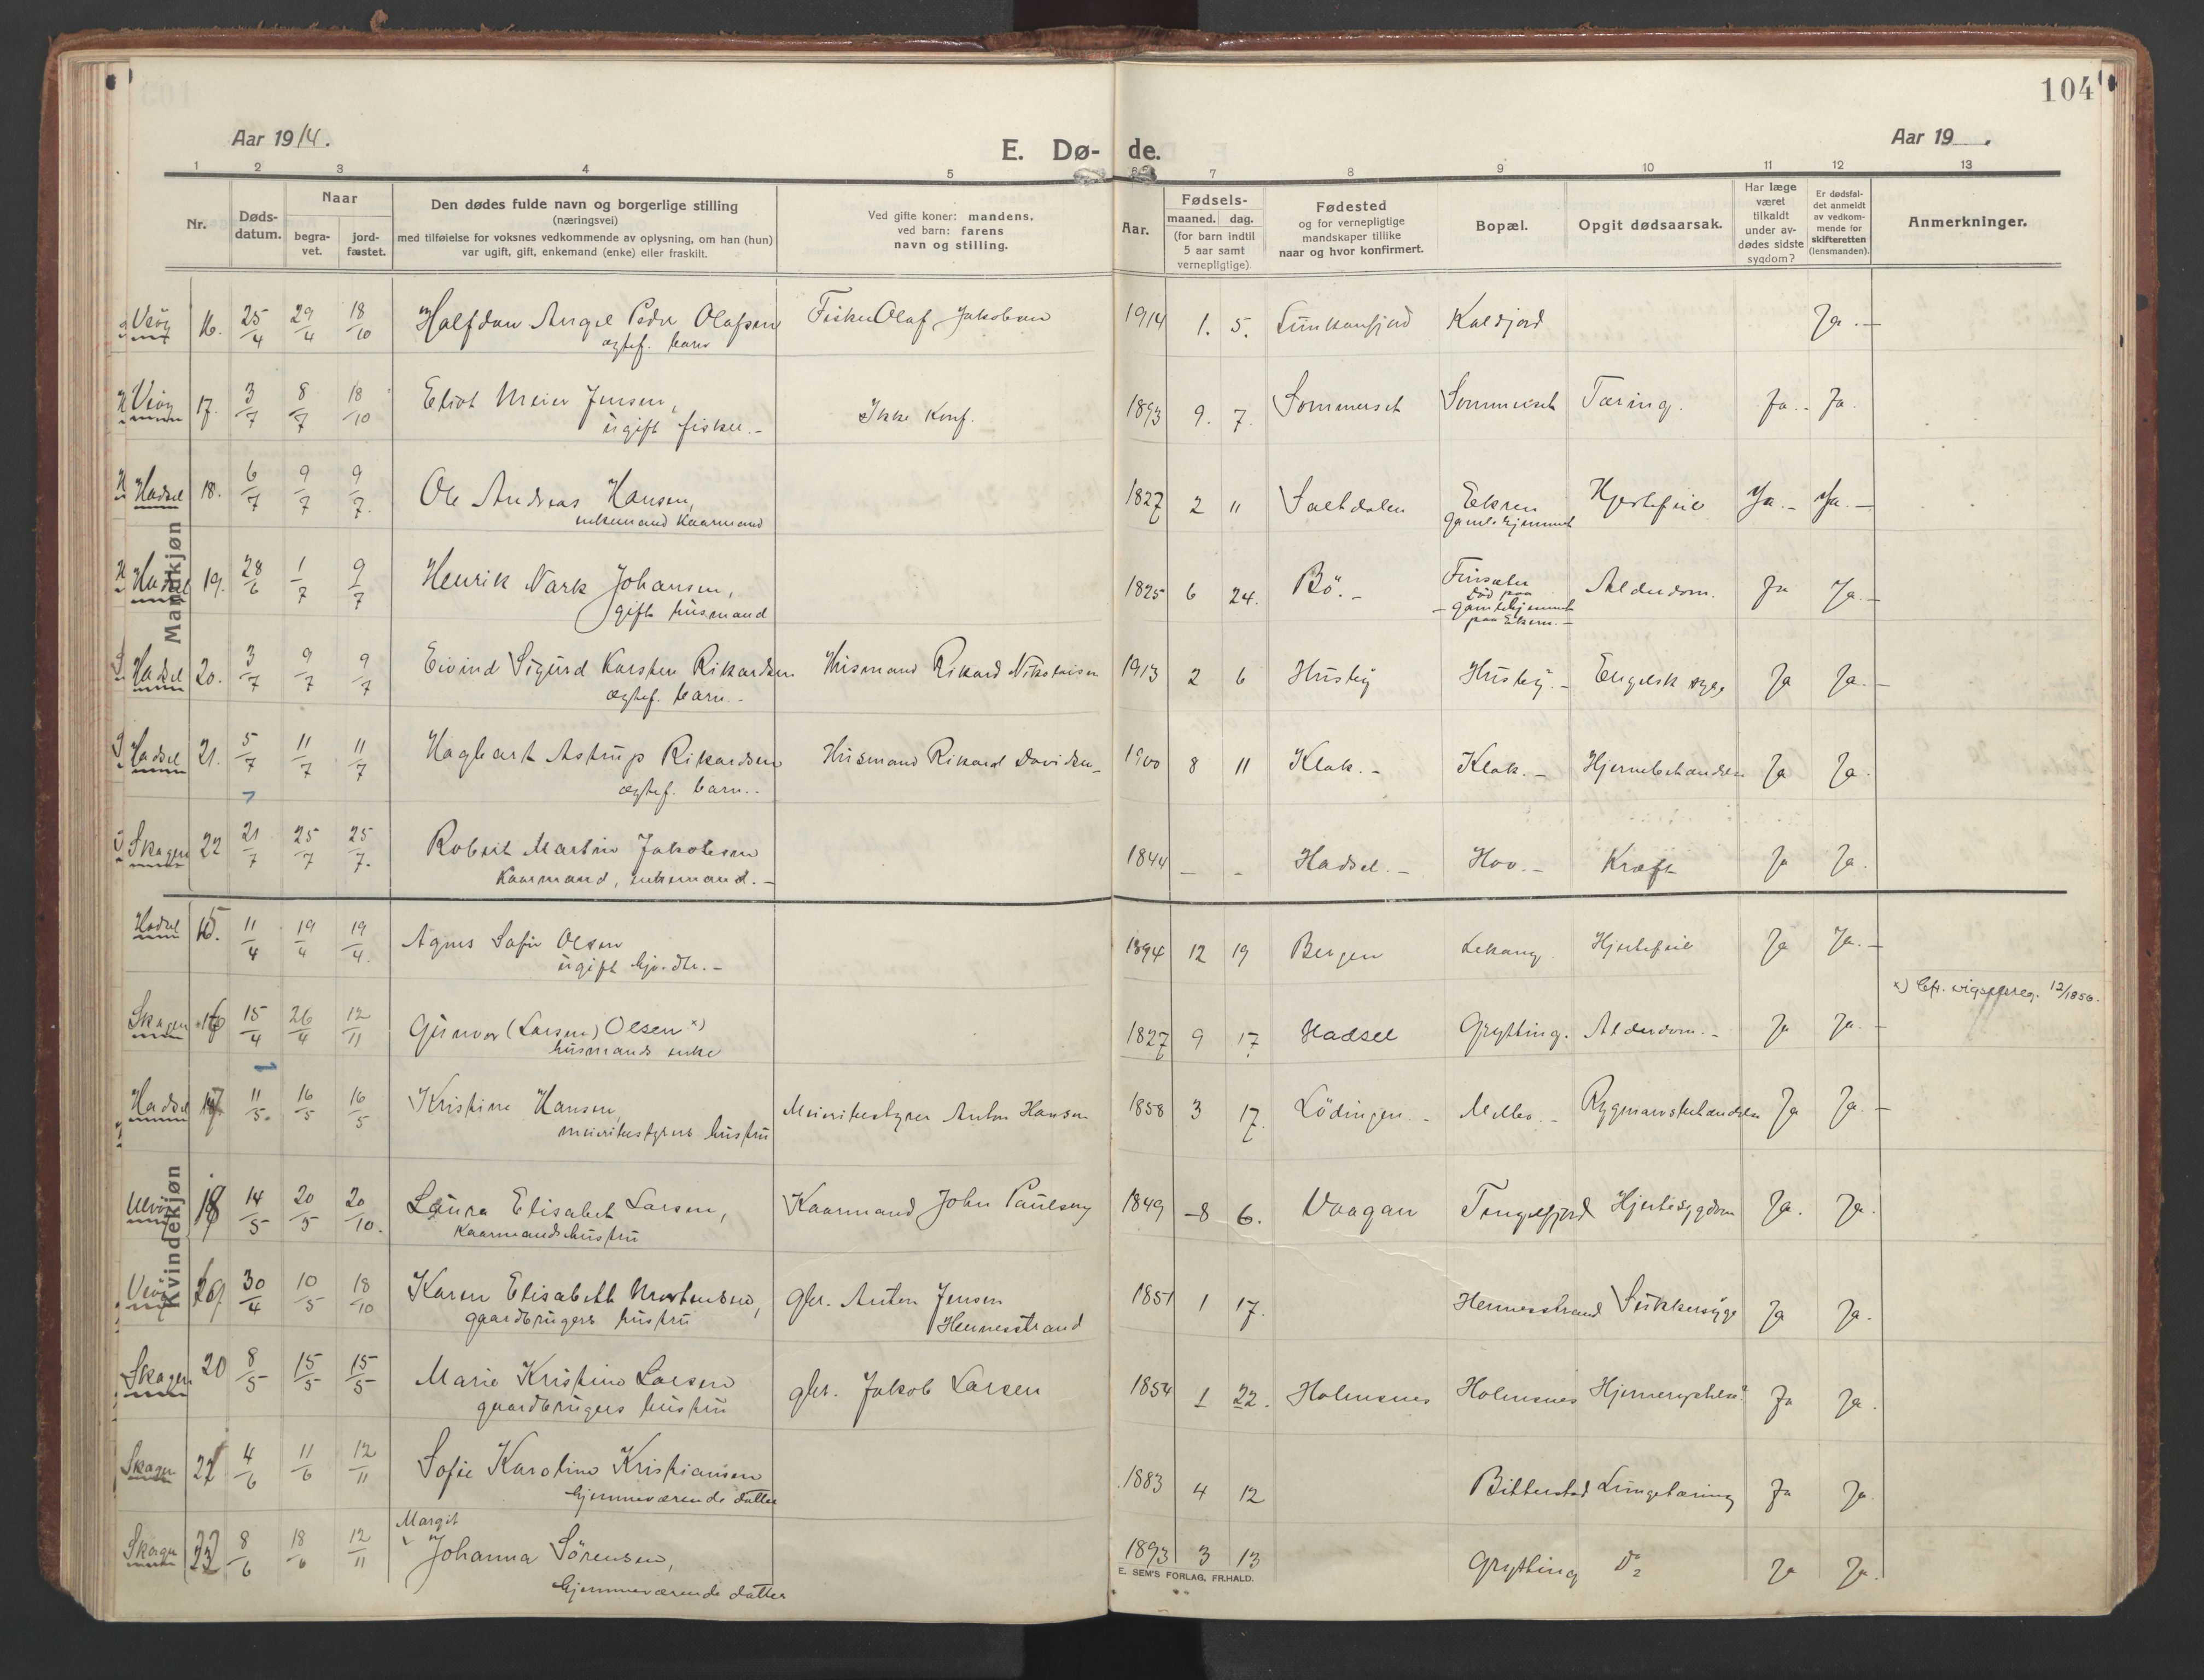 104
Aar 1914.
E. Dø-
de.
Aar 19 .
1 2 3 4 5 6 7 8 9 10 11 12 13
Nr.
Døds-
datum.
Naar
begra-
vet.
jord-
fæstet.
Den dødes fulde navn og borgerlige stilling
(næringsvei)
med tilføielse for voksnes vedkommende av oplysning, om han (hun)
var ugift, gift, enkemand (enke) eller fraskilt.
Ved gifte koner: mandens,
ved barn: farens
navn og stilling.
Aar.
Fødsels-
maaned. dag.
(for barn indtil
5 aar samt
vernepligtige)
Fødested
og for vernepligtige
mandskaper tillike
naar og hvor konfirmert.
Bopæl.
Opgit dødsaarsak.
Har læge
været
tilkaldt
under av-
dødes sidste
sygdom?
Er dødsfal-
det anmeldt
av vedkom-
mende for
skifteretten
(lensmanden).
Anmerkninger.
Mandkjøn
16. 25/4 29/4 18/10 Halfdan Angel Peder Olafsen Fisker Olaf Jakobsen 1914 1. 5. Kaldjord Ja.-
ægtef. barn
17. 3/7 8/7 18/10 Eliot Meier Jensen, Ikke Konf. 1893 9. 7. Sommerset Sommerset Tæring. Ja.- Ja.
ugift fisker.-
Hadsel 18. 6/7 9/7 9/7. Ole Andreas Hansen, 1827 2 11 Saltdalen Eksren Hjertefeil Ja.- Ja.-
enkemand Kaarmand gamlehjemmet
Hadsel 19. 28/6 1/7 9/7 Henrik Nark Johansen, 1825 6 24. Bö.- Alderdom. Ja Ja.-
gift husmand
død paa
- gamlehjemmet
paa Eksren.-
Hadsel 20. 3/7 9/7 9/7 Eivind Sigurd Karsten Rikardsen Husmand Rikard Nikolaisen 1913 2 6 Husby Husby.- Engelsk syge Ja Ja.-
ægtef. barn.-
Hadsel 21. 5/7 11/7 11/7 Hagbart Astrup Rikardsen Husmand Rikard Davidsen 1900 8 11 Klak.- Klak.- Hjernebetændelse Ja Ja
ægtef. barn.-
Skagen 22 21/7 25/7 25/7. Robert Martin Jakobsen 1844 - - Hadsel.- Hov.- Kræft Ja Ja.
Kaarmand, enkemand.-
Kvindekjøn
Hadsel 15. 11/4 19/4 19/4. Agnes Sofie Olsen 1894 12 19 Bergen Lekang. Hjertefeil Ja Ja.-
ugift
x) Cfr. 12/1856.
Skagen 16 15/4 26/4 12/11 Gunvor (Larsen) Olsen x) 1827 9 17 Hadsel Grytting. Alderdom.- Ja Ja.-
husmands enke
Hadsel 17 11/5. 16/5 16/5 Kristine Hansen, Meieribestyrer Anton Hansen 1858 3 17. Lödingen.- Melbo.- Rygmarvsbetændelse Ja Ja.-
meieribestyrers hustru
Ulvöy 18 14/5 20/5 20/10. Laura Elisabet Larsen, Kaarmand John Paulsen 1849 -8 6. Vaagan Tengelfjord Hjertesygdom Ja. Ja.
Kaarmandshustru
19 30/4 10/5 18/10 Karen Elisabeth Mortensen, gbr. Anton Jensen 1851 1 17. Hennesstrand Sukkersyge Ja Ja.
gaardbrugers hustru Hennesstrand
Skagen 20 8/5 15/5 15/5 Marie Kristine Larsen gbr. Jakob Larsen 1854 1 22. Holmsnes Holmsnes Ja Ja.
gaardbrugers hustru
Skagen 21 4/6 11/6 12/11 Sofie Karoline Kristiansen 1883 4 12 Bitterstad Lungetæring Ja Ja.
hjemmeværende datter
Margit
Skagen 22 8/6 18/6 12/11 Johanna Sörensen, 1893 3 13 Grytting Do Ja Ja.
hjemmeværende datter
E. SEM'S FORLAG, FR.HALD.